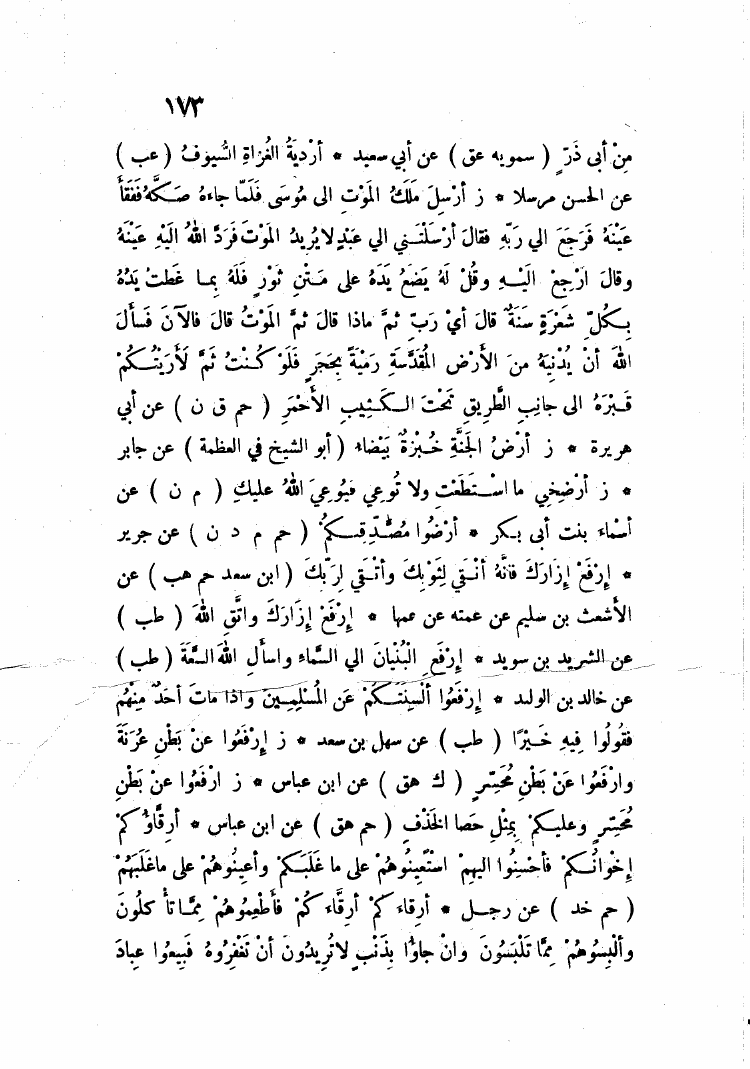 ١٧٣
مِنْ أبى ذَرّ ( سمويه عق ) عن أبي سعيد * أرْدِيَةُ الغُزَاةِ السُّيُوفُ ( عب )
عن الحسن مرسلا * ز أرْسِلَ مَلَكُ المَوْتِ الى مُوسَى فَلَمَّا جاءهُ صَكَّهُ فَفَقَأَ
عَيْنَهُ فَرَجَعَ الي رَبّهِ فقالَ أرْسَلْتَنِي الي عَبْدٍ لا يُرِيدُ المَوْتَ فَرَدَّ اللهُ الَيْهِ عَيْنَهُ
وقالَ ارْجِعْ الَيْهِ وقُلْ لَهُ يَضَعُ يَدَهُ على مَتْنِ ثَوْرٍ فَلَهُ بِما غَطتْ يَدُهُ
بِكُلّ شَعْرَةٍ سَنَةٌ قالَ أيْ رَبّ ثُمَّ ماذا قالَ ثُمَّ المَوْتُ قالَ فالآنَ فَسألَ
اللهَ أنْ يُدْنِيَهُ منَ الأرْضِ المُقَدَّسَةِ رَمْيَةً بِحَجَرٍ فَلَوْ كُنْتُ ثَمَّ لَأَرَيْتُكُمْ
قَبْرَهُ الى جانِبِ الطَّرِيقِ تَحْتَ الكَثِيبِ الأحْمَرِ ( حم ق ن ) عن أبي
هريرة * ز أرْضُ الجَنَّةِ خُبْزَةٌ بَيْضاء ( أبو الشيخ في العظمة ) عن جابر
* ز أرْضِخِي ما اسْتَطَعْتِ ولا تُوعِي فَيُوعِيَ اللهُ عليكِ ( م ن ) عن
أسْماء بنت أبى بكر * أرْضُوا مُصَّدِّقِيكُمْ ( حم م د ن ) عن جرير
* إِرْفَعْ إزَارَكَ فانَّهُ أنْقَي لِثَوْبِكَ وأتْقَي لِرَبّكَ ( ابن سعد حم هب ) عن
الأشعث بن سليم عن عمته عن عمها * إِرْفَعْ إزَارَكَ واتَّقِ اللهَ ( طب )
عن الشريد بن سويد * إِرْفَعِ البُنْيَانَ الي السَّماءِ واسألِ اللهَ السَّعَةَ ( طب )
عن خالد بن الوليد * إِرْفَعُوا ألْسِنَتَكُمْ عَنِ المُسْلِمِينَ واذا ماتَ أحَدٌ مِنْهُمْ
فقُولُوا فِيهِ خَيْرًا ( طب ) عن سهل بن سعد * ز إِرْفَعُوا عنْ بَطْنِ عُرَنَةَ
وارْفَعُوا عَنْ بَطْنِ مُحَسِّرٍ ( ك هق ) عن ابن عباس * ز ارْفَعُوا عنْ بَطْنِ
مُحَسِّرٍ وعليكمْ بِمِثْلِ حَصا الخَذْفِ ( حم هق ) عن ابن عباس * أرِقَّاؤكُمْ
إخْوانُكُمْ فأحْسِنُوا اليهِمْ اسْتَعِينُوهُمْ على ما غَلَبَكُمْ وأعِينُوهُمْ على ما غَلَبَهُمْ
( حم خد ) عن رجل * أرِقاءكُمْ أرِقَّاءكُمْ فأَطْعِمُوهُمْ مِمَّا تَأْ كلُونَ
وألْبِسُوهُمْ مِمَّا تَلْبَسُونَ وانْ جاؤُا بِذَنْبٍ لا تُرِيدُونَ أنْ تَغْفِرُوهُ فَبِيعُوا عِبادَ